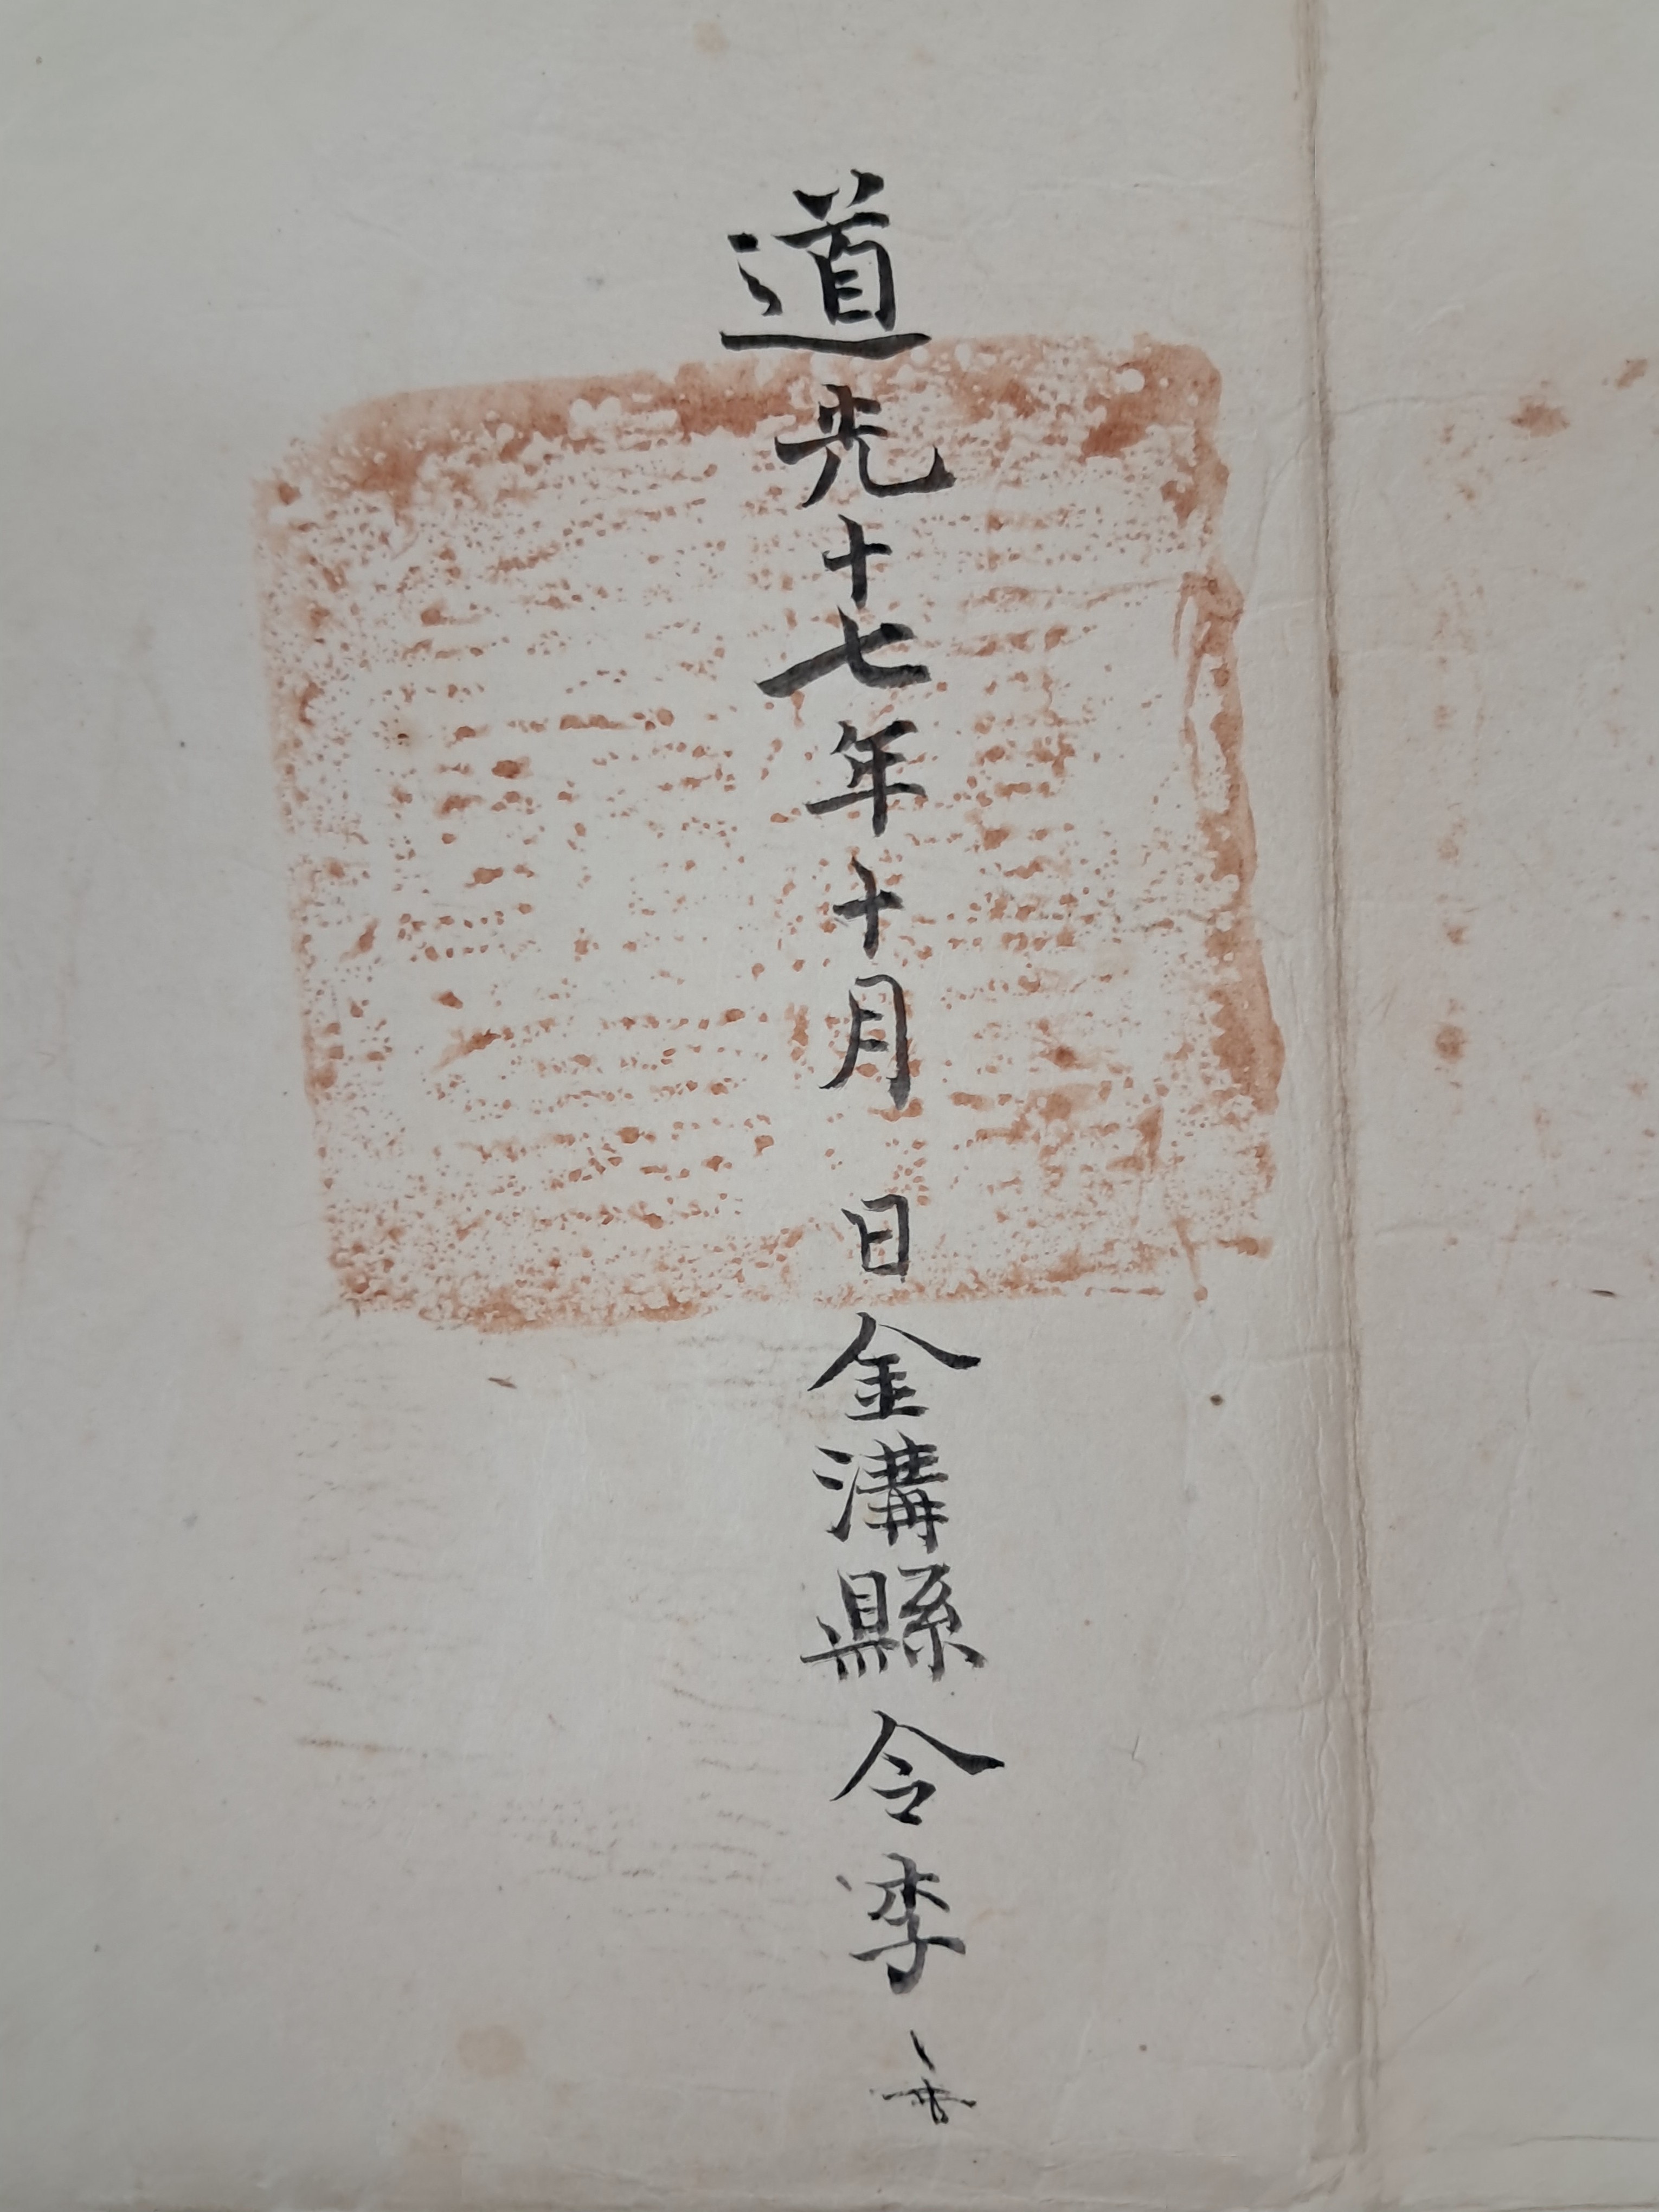 道光十七年十月 日金溝縣令李